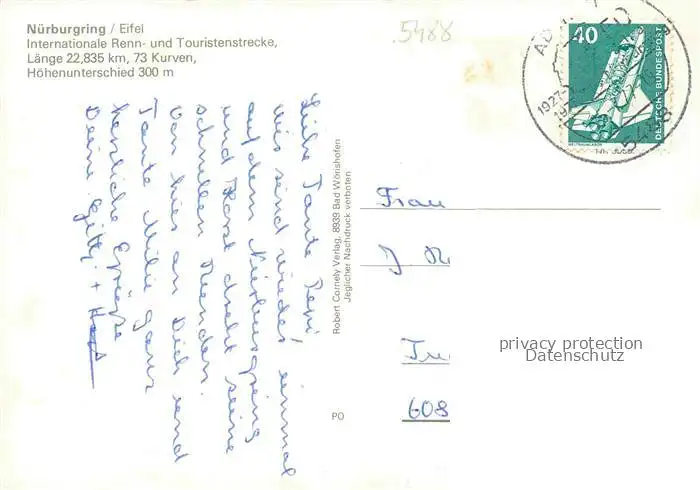 Nürburgring / Eifel
Internationale Renn- und Touristenstrecke,
Länge 22,835 km, 73 Kurven,
Höhenunterschied 300 m
5488
40
DEUTSCHE BUNDESPOST
WELTRAUMLABOR
1927-
5488
Liebe Tante Peni
wir sind wieder einmal
auf dem Nürburgring
und Horst dreht seine
schnellen Runden.
Von hier an Dich und
Tante Milie ganz
herzliche Grüße
Deine Gitty +
Robert Cornely Verlag, 8939 Bad Wörishofen
Jeglicher Nachdruck verboten
Frau
PO
608
privacy protection
Datenschutz